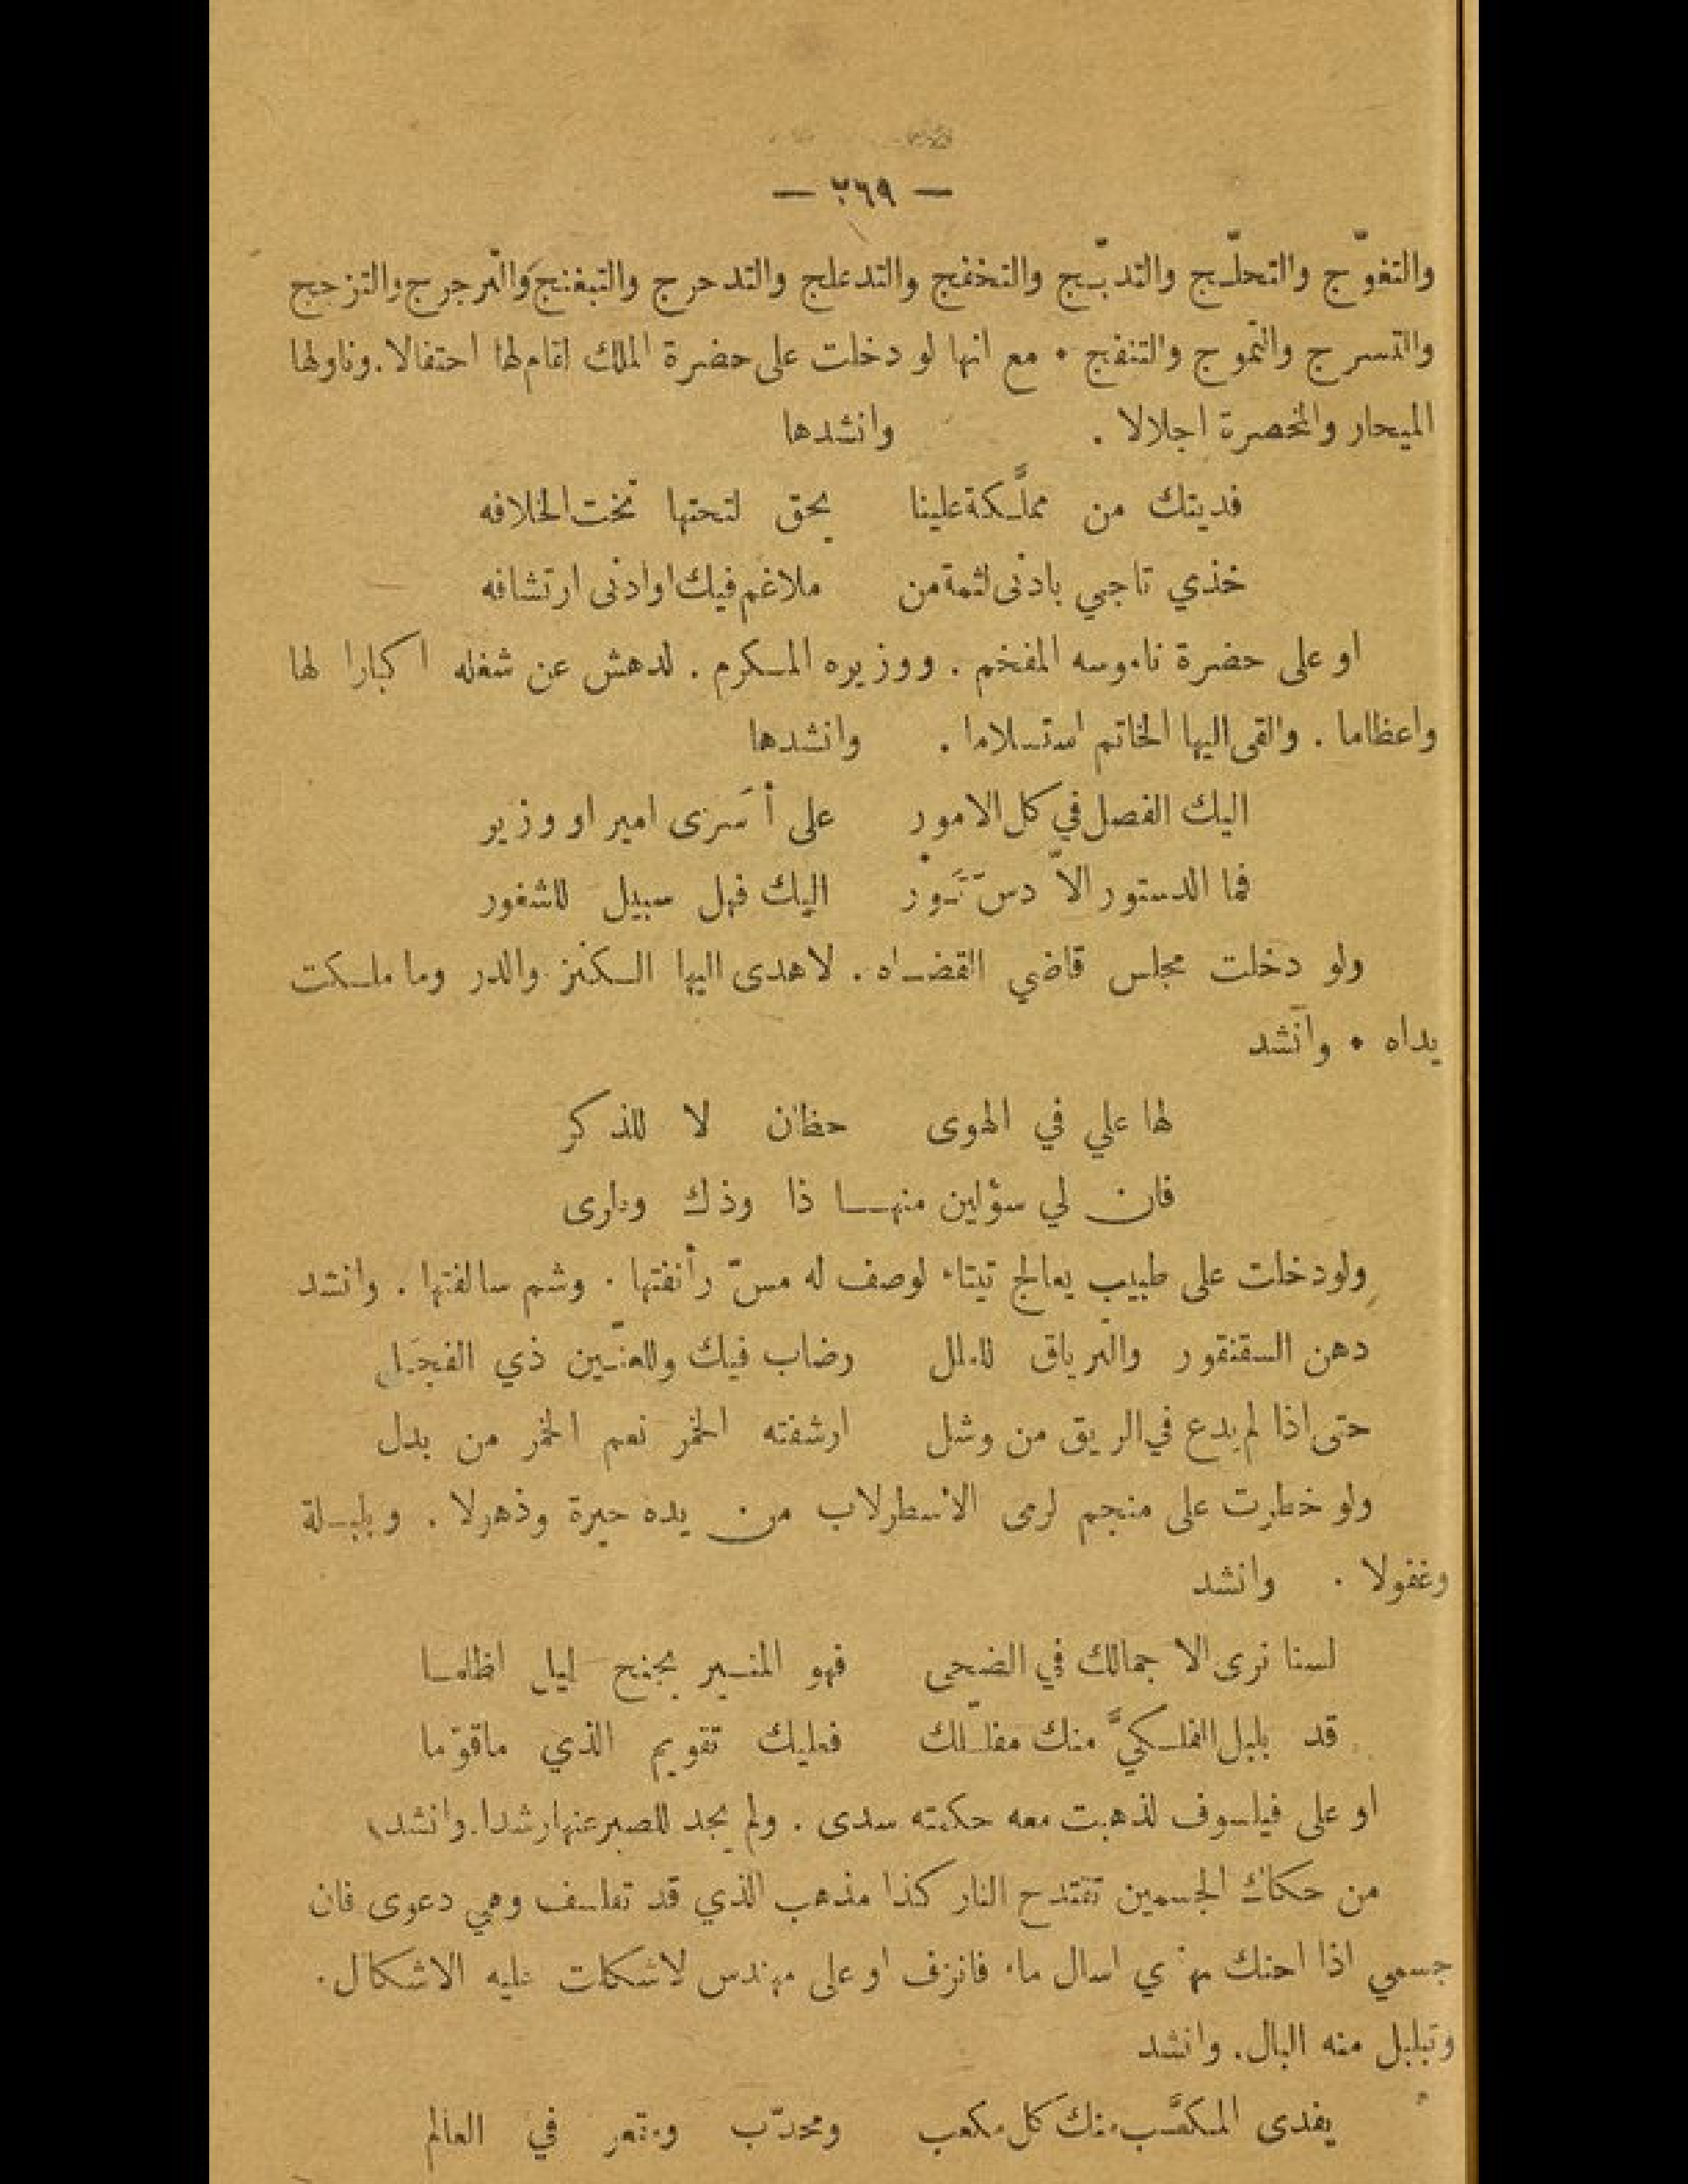 — ٢٦٩ —
والتفوّج والتحلّج والتدبّج والتخفج والتدعلج والتدحرج والتبغنج والترجرج والتزجج
والتسرج والتموج والتنفج • مع انها لو دخلت على حضرة الملك لقام لها احتفالا. وناولها
الميحار والمخصرة اجلالا . وانشدها
فديتك من مملَّكة علينا بحق لتحتها تخت الخلافه
خذي تاجي بادنى لثمة من ملاغم فيك او ادنى ارتشافه
او على حضرة ناموسه المفخم . ووزيره المكرم . لدهش عن شغله اكبارا لها
واعظاما . والقى اليها الخاتم استسلاما . وانشدها
اليك الفصل في كل الامور على أسرى امير او وزير
فما الدستور الاّ دس تَور اليك فهل سبيل للشغور
ولو دخلت مجلس قاضي القضاه . لاهدى اليها الكنز والدر وما ملكت
يداه • وانشد
لها علي في الهوى حظان لا للذكر
فان لي سؤلين منها ذا وذك وارى
ولو دخلت على طبيب يعالج تيتاء لوصف له مسّ رأنفتها . وشم سالفتها . وانشد
دهن السقنقور والترياق للملل رضاب فيك وللعنّين ذي الفجَل
حتى اذا لم يدع في الريق من وشل ارشفته الخمر نعم الخمر من بدل
ولو خطرت على منجم لرمى الاسطرلاب من يده حيرة وذهولا . وبلبلة
وغفولا . وانشد
لسنا نرى الا جمالك في الضحى فهو المنير بجنح ليل اظلما
قد بلبل الفلكيَّ منك مفلّك فعليك تقويم الذي ما قوّما
او على فيلسوف لذهبت معه حكمته سدى . ولم يجد للصبر عنها رشدا. وانشد
من حكاك الجسمين تقتدح النار كذا مذهب الذي قد تفلسف وهي دعوى فان
جسمي اذا احتك اسال ماء فانزف او على مهندس لاشكلت عليه الاشكال .
وتبلبل منه البال. وانشد
يفدى المكعَّب منك كل مكعب ومحدّب ومقعر في العالم